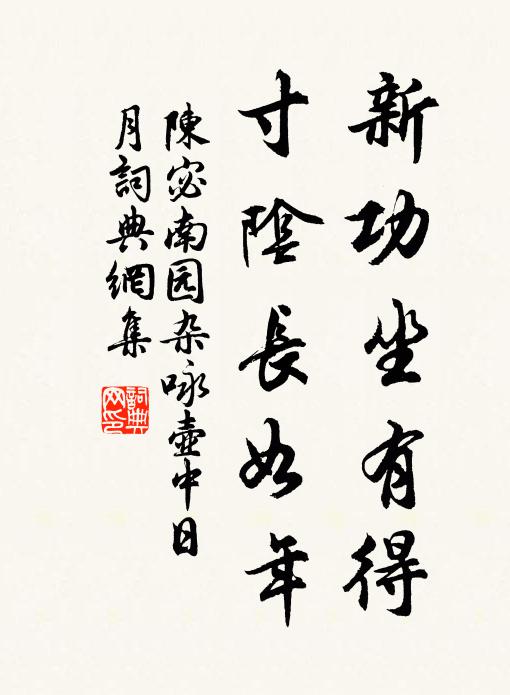 新功坐有得
寸陰長如年
陳宓南园杂咏壺中日
月詞典網集
詞典网印